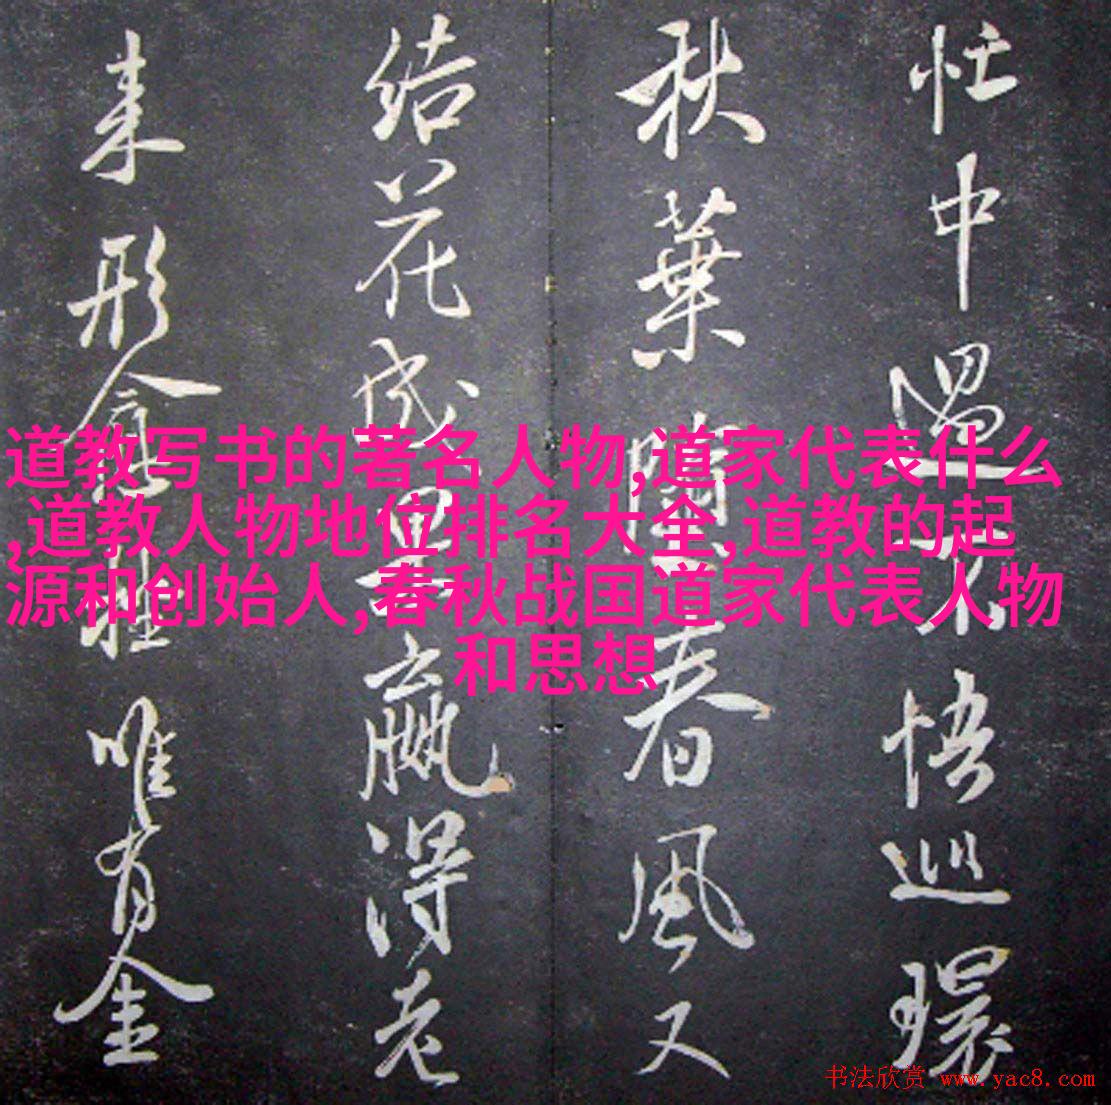 忙中過不悟巡環
秋葉春風又
結花成贏得老
来形唯有金
道教写书的著名人物,道家代表什么
,道教人物地位排名大全,道教的起
源和创始人,春秋战国道家代表人物
和思想
书法欣赏 www.yac8.com